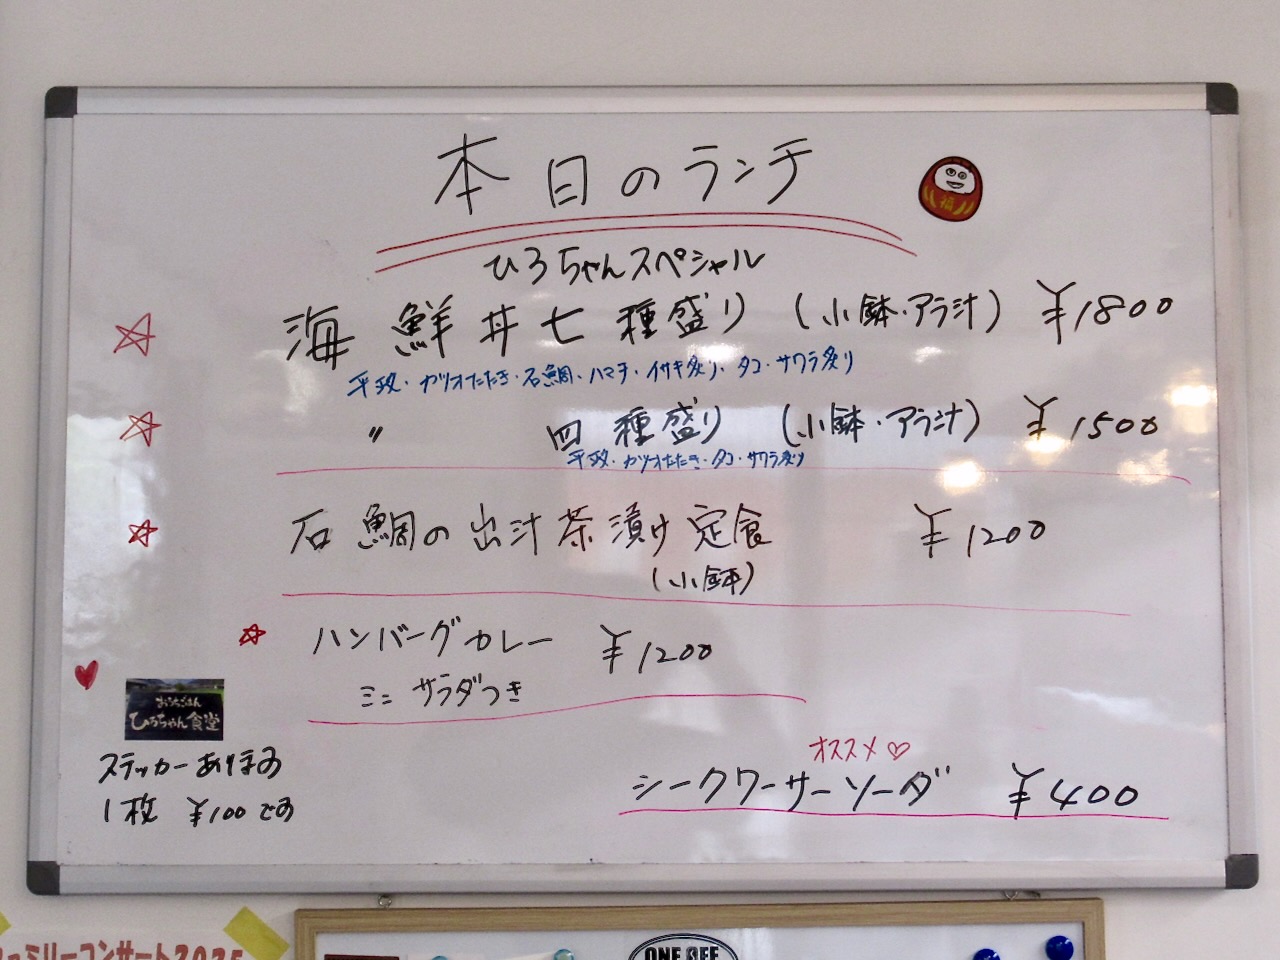 本日のランチ
福
ひろちゃんスペシャル
海鮮丼七種盛り (小鉢・アラ汁) ¥1800
平政・カツオたたき・石鯛・ハマチ・イサキ炙り・タコ・サワラ炙り
〃 四種盛り (小鉢・アラ汁) ¥1500
平政・カツオたたき・タコ・サワラ炙り
石鯛の出汁茶漬け定食 ¥1200
(小鉢)
ハンバーグカレー ¥1200
ミニサラダつき
おうちごはん
ひろちゃん食堂
ステッカーあります
1枚 ¥100です
オススメ♡
シークワーサーソーダ ¥400
ファミリーコンサート2025
ONE OFF